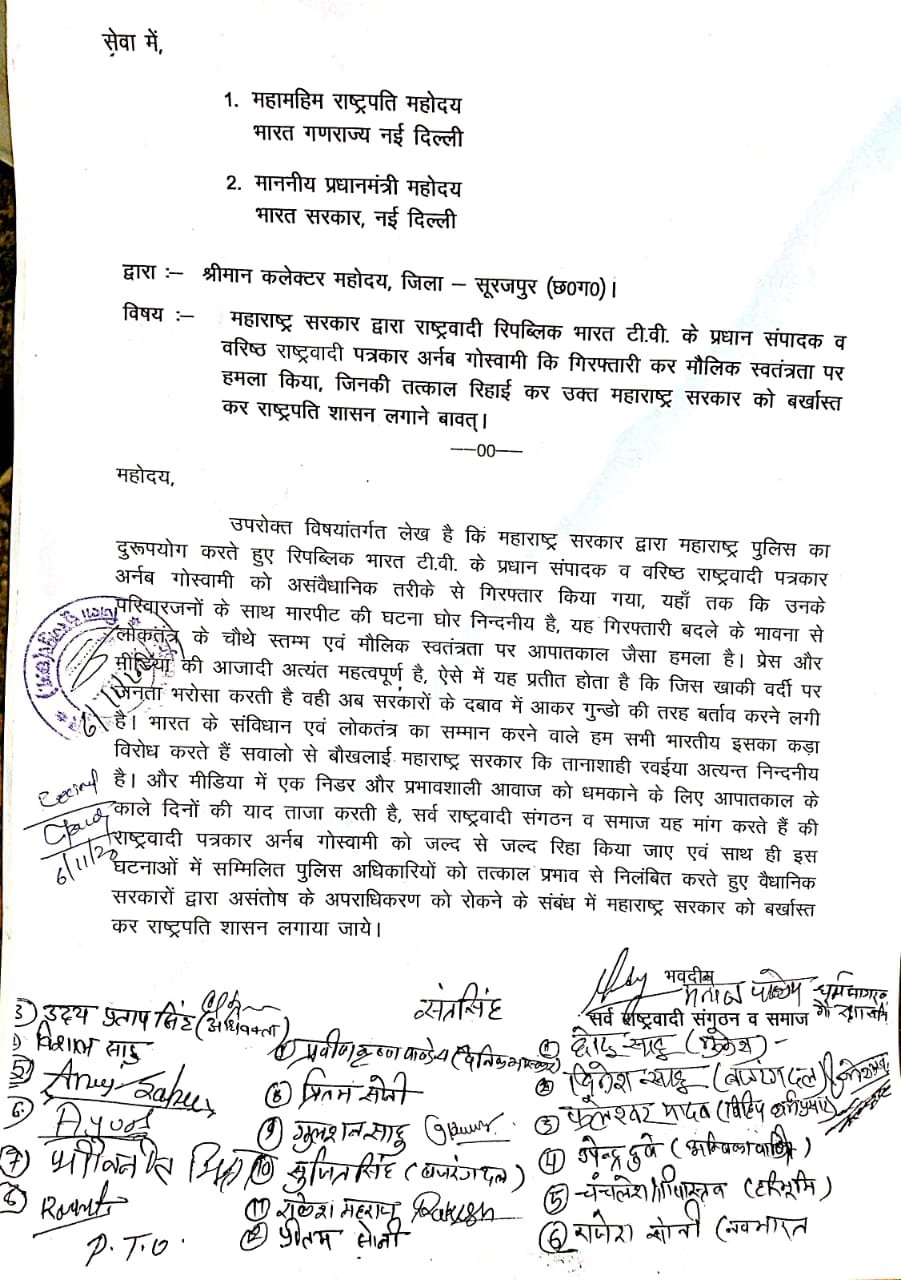 सेवा में,
1. महामहिम राष्ट्रपति महोदय
भारत गणराज्य नई दिल्ली
2. माननीय प्रधानमंत्री महोदय
भारत सरकार, नई दिल्ली
द्वारा :– श्रीमान कलेक्टर महोदय, जिला – सूरजपुर (छ0ग0)।
विषय :– महाराष्ट्र सरकार द्वारा राष्ट्रवादी रिपब्लिक भारत टी.वी. के प्रधान संपादक व
वरिष्ठ राष्ट्रवादी पत्रकार अर्नब गोस्वामी कि गिरफ्तारी कर मौलिक स्वतंत्रता पर
हमला किया, जिनकी तत्काल रिहाई कर उक्त महाराष्ट्र सरकार को बर्खास्त
कर राष्ट्रपति शासन लगाने बावत्।
––00––
महोदय,
उपरोक्त विषयांतर्गत लेख है कि महाराष्ट्र सरकार द्वारा महाराष्ट्र पुलिस का
दुरूपयोग करते हुए रिपब्लिक भारत टी.वी. के प्रधान संपादक व वरिष्ठ राष्ट्रवादी पत्रकार
अर्नब गोस्वामी को असंवैधानिक तरीके से गिरफ्तार किया गया, यहाँ तक कि उनके
परिवारजनों के साथ मारपीट की घटना घोर निन्दनीय है, यह गिरफ्तारी बदले के भावना से
लोकतंत्र के चौथे स्तम्भ एवं मौलिक स्वतंत्रता पर आपातकाल जैसा हमला है। प्रेस और
मीडिया की आजादी अत्यंत महत्वपूर्ण है, ऐसे में यह प्रतीत होता है कि जिस खाकी वर्दी पर
जनता भरोसा करती है वही अब सरकारों के दबाव में आकर गुन्डो की तरह बर्ताव करने लगी
है। भारत के संविधान एवं लोकतंत्र का सम्मान करने वाले हम सभी भारतीय इसका कड़ा
विरोध करते हैं सवालो से बौखलाई महाराष्ट्र सरकार कि तानाशाही रवईया अत्यन्त निन्दनीय
है। और मीडिया में एक निडर और प्रभावशाली आवाज को धमकाने के लिए आपातकाल के
काले दिनों की याद ताजा करती है, सर्व राष्ट्रवादी संगठन व समाज यह मांग करते हैं की
राष्ट्रवादी पत्रकार अर्नब गोस्वामी को जल्द से जल्द रिहा किया जाए एवं साथ ही इस
घटनाओं में सम्मिलित पुलिस अधिकारियों को तत्काल प्रभाव से निलंबित करते हुए वैधानिक
सरकारों द्वारा असंतोष के अपराधिकरण को रोकने के संबंध में महाराष्ट्र सरकार को बर्खास्त
कर राष्ट्रपति शासन लगाया जाये।
6/11/20
भवदीय
सर्व राष्ट्रवादी संगठन व समाज
3) उदय प्रताप सिंह (अधिवक्ता)
संतसिंह
विशाल साहू
प्रवीण कृष्ण पाण्डेय (दैनिक भास्कर)
8 प्रितम सोनी
9 गुलशन साहू
10 सुजित सिंह (बजरंग दल)
11 राकेश महराज Rakesh
12 प्रीतम सोनी
2 दिनेश साहू (बजरंग दल)
3 फुलेश्वर यादव
4 उपेन्द्र दुबे (अम्बिकावाणी)
5 चंचलेश श्रीवास्तव (हरिभूमि)
6 राजेश सोनी (नवभारत
P.T.O.